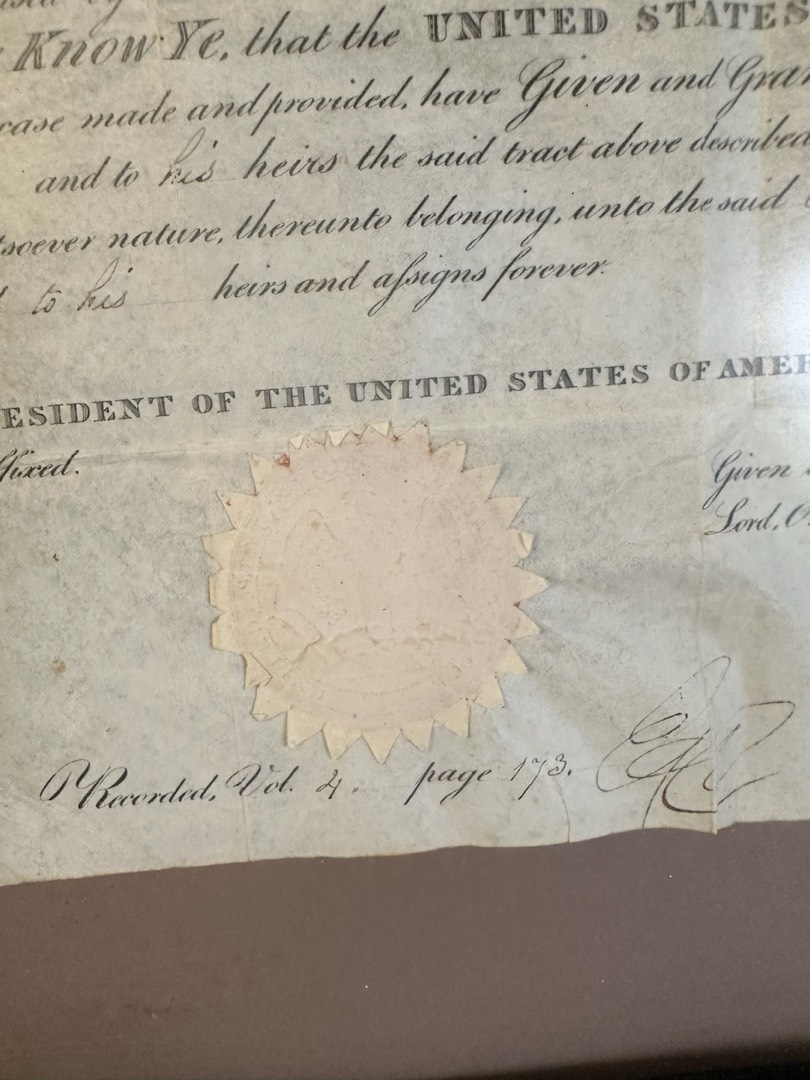 Know Ye, that the UNITED STATES
case made and provided, have Given and Gran
and to his heirs the said tract above described
tsoever nature, thereunto belonging, unto the said
to his heirs and aſsigns forever.
ESIDENT OF THE UNITED STATES OF AMER
ffixed.
Given
Lord, O
Recorded, Vol. 4. page 173.